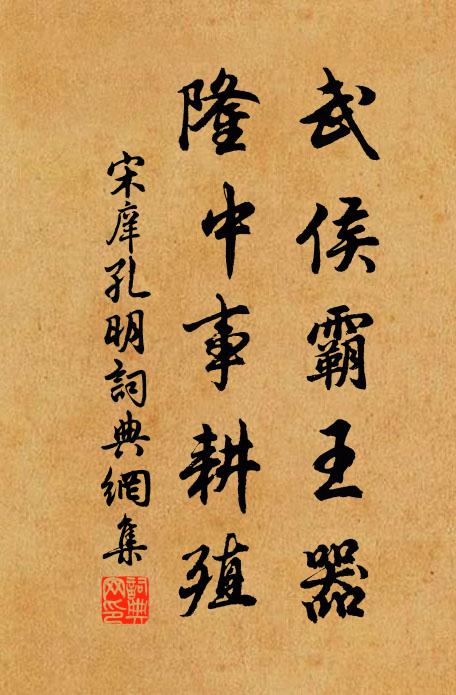 武侯霸王器
隆中事耕殖
宋庠孔明詞典網集
詞典網印